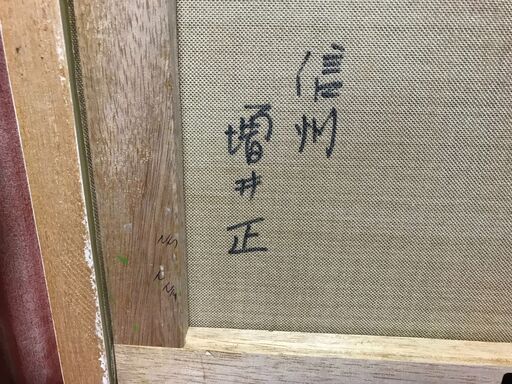 信州
増井正